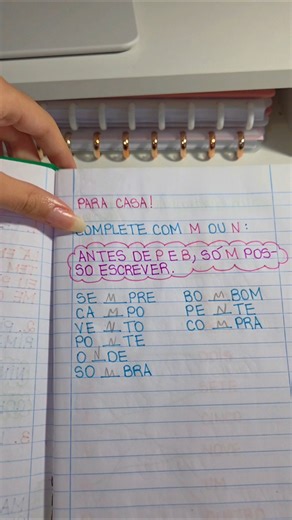 PARA CASA!
COMPLETE COM M OU N:
ANTES DE P E B, SÓ M POS-
SO ESCREVER.
SE M PRE BO M BOM
CA M PO PE N TE
VE N TO CO M PRA
PO N TE
O N DE
SO M BRA